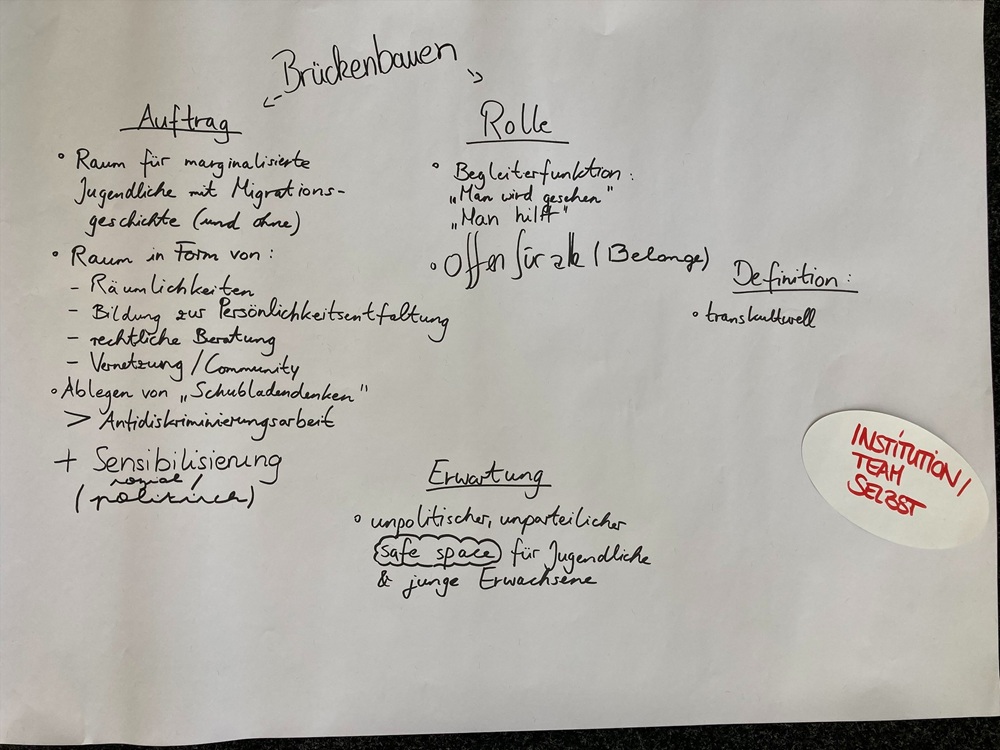 Brückenbauen
Auftrag
° Raum für marginalisierte
Jugendliche mit Migrations-
geschichte (und ohne)
° Raum in Form von:
- Räumlichkeiten
- Bildung zur Persönlichkeitsentfaltung
- rechtliche Beratung
- Vernetzung / Community
° Ablegen von „Schubladendenken"
> Antidiskriminierungsarbeit
+ Sensibilisierung
sozial /
(politisch)
Rolle
° Begleiterfunktion:
„Man wird gesehen"
„Man hilft"
° Offen für alle (Belange)
Definition:
° transkulturell
Erwartung
° unpolitischer, unparteilicher
safe space für Jugendliche
& junge Erwachsene
INSTITUTION /
TEAM
SELBST